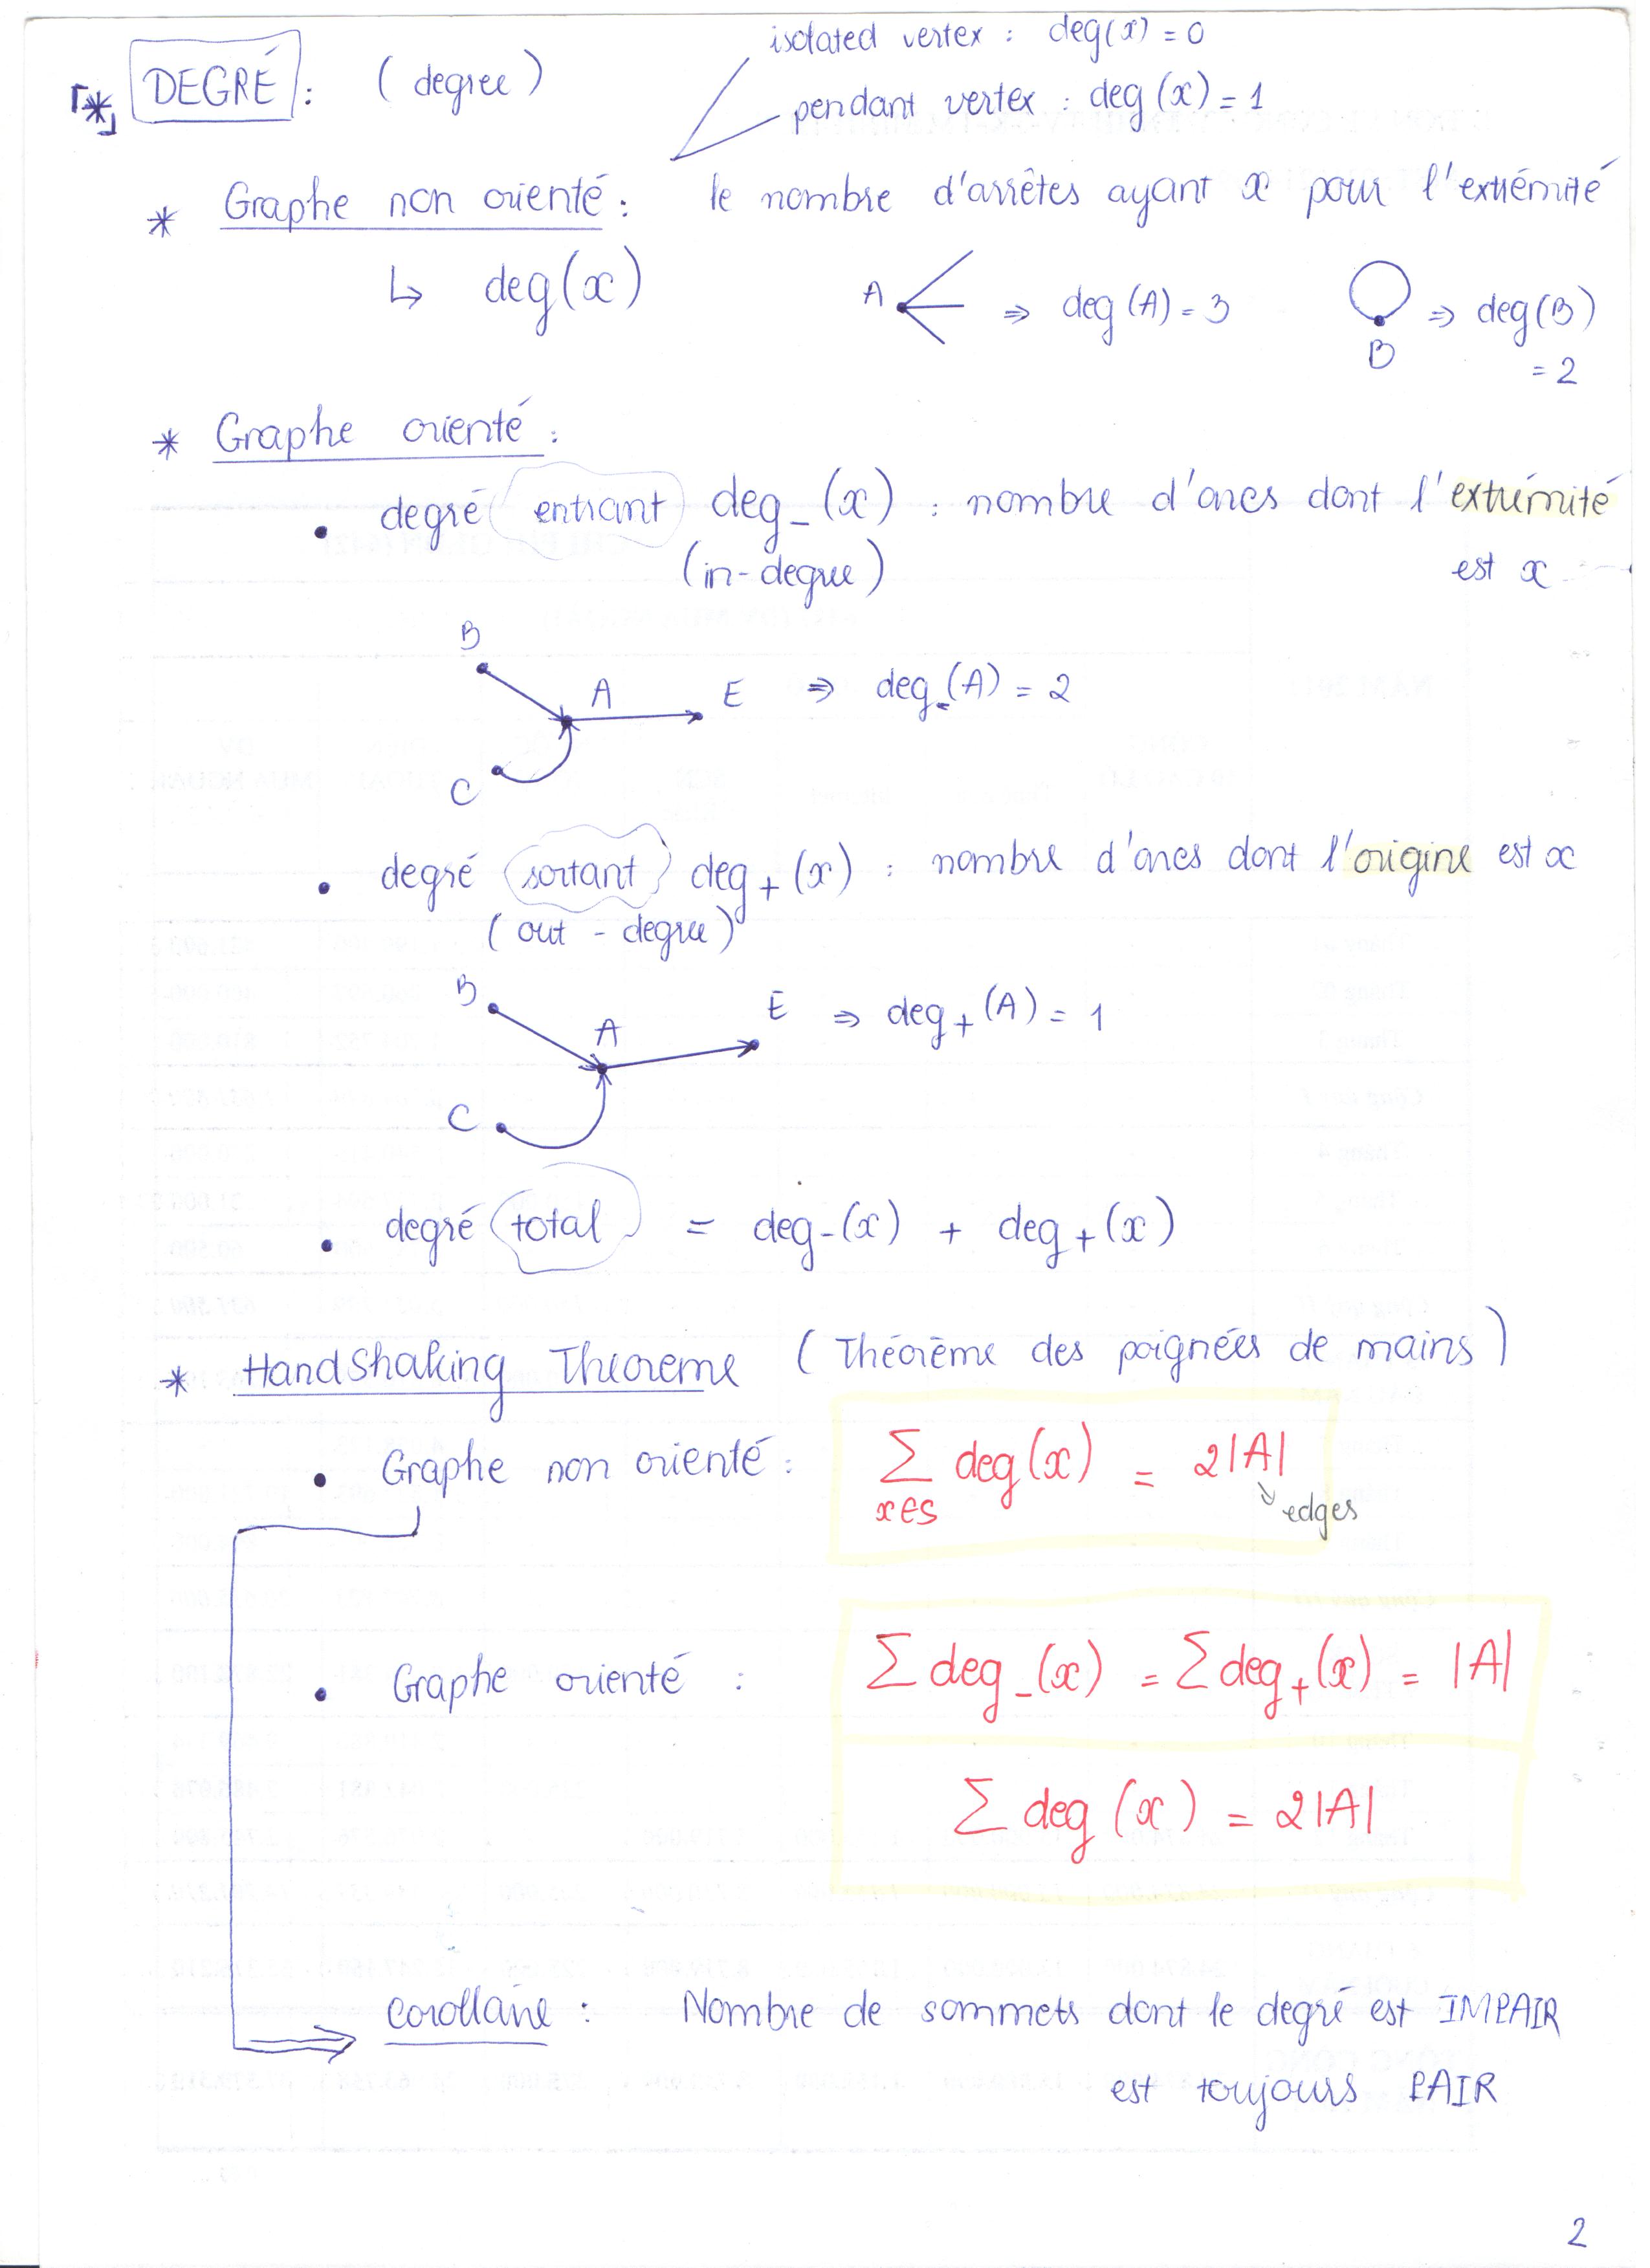 isolated vertex : deg(x) = 0
DEGRÉ : (degree)
pendant vertex : deg(x) = 1
* Graphe non orienté : le nombre d'arrêtes ayant x pour l'extrémité
↳ deg(x)
A ⇒ deg(A) = 3
B ⇒ deg(B) = 2
* Graphe orienté :
• degré entrant deg₋(x) : nombre d'arcs dont l'extrémité
(in-degree) est x
B
A E ⇒ deg₋(A) = 2
C
• degré sortant deg₊(x) : nombre d'arcs dont l'origine est x
(out-degree)
B
A E ⇒ deg₊(A) = 1
C
• degré total = deg₋(x) + deg₊(x)
* HandShaking Theoreme (Théorème des poignées de mains)
• Graphe non orienté : ∑ deg(x) = 2|A|
x∈S edges
• Graphe orienté : ∑ deg₋(x) = ∑ deg₊(x) = |A|
∑ deg(x) = 2|A|
Corollaire : Nombre de sommets dont le degré est IMPAIR
est toujours PAIR
2